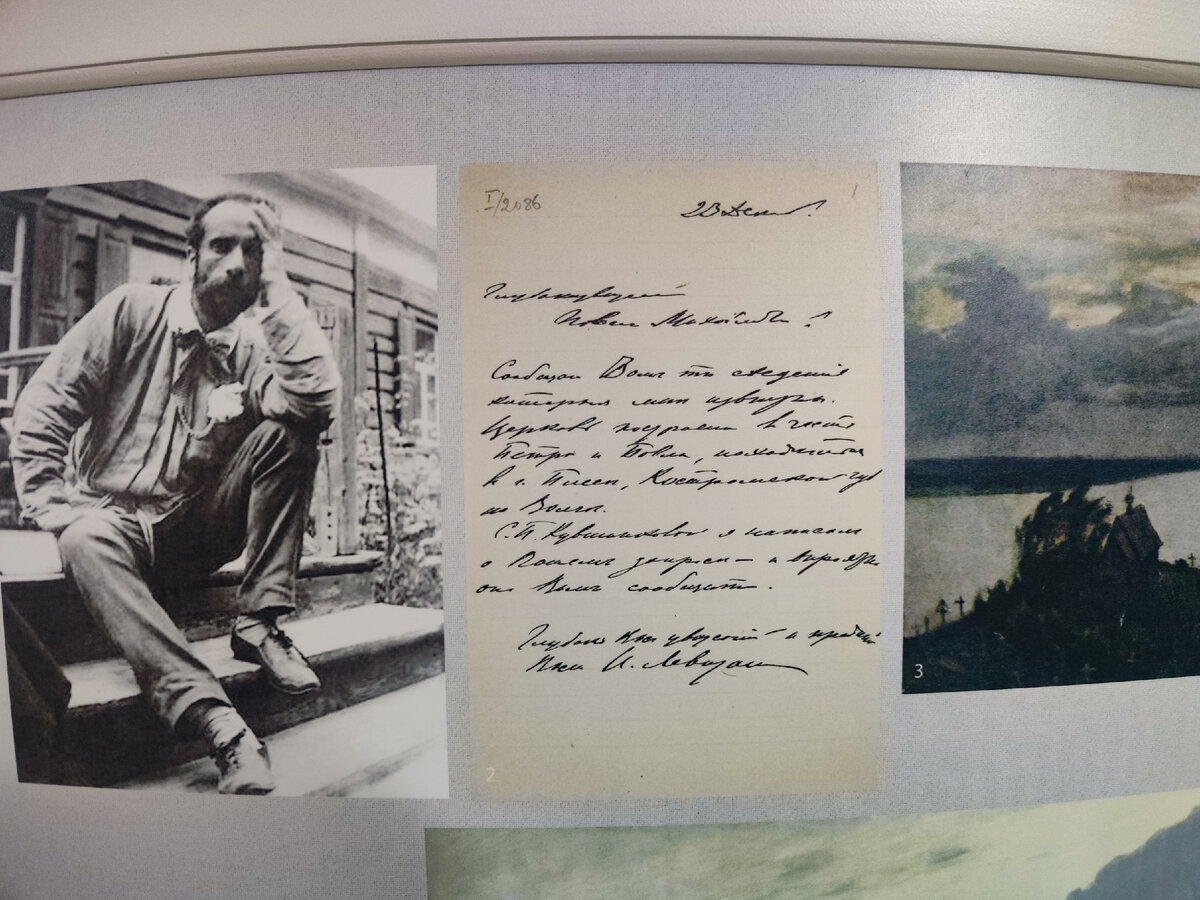 I/2086
1
23 Декаб.
Глубокоуваж.
Павел Михайловичъ!
Сообщаю Вамъ тѣ сведения
которыя мнѣ извѣстны.
Церковь построена въ честь
Петра и Павла, находится
въ г. Плесѣ, Костромской губ
на Волгѣ.
С. П. Кувшинниковой я написалъ
о Вашемъ запросѣ — и вѣроятно
она Вамъ сообщитъ.
Глубоко Васъ уважающій и преданный
Вамъ И. Левитан
2
3